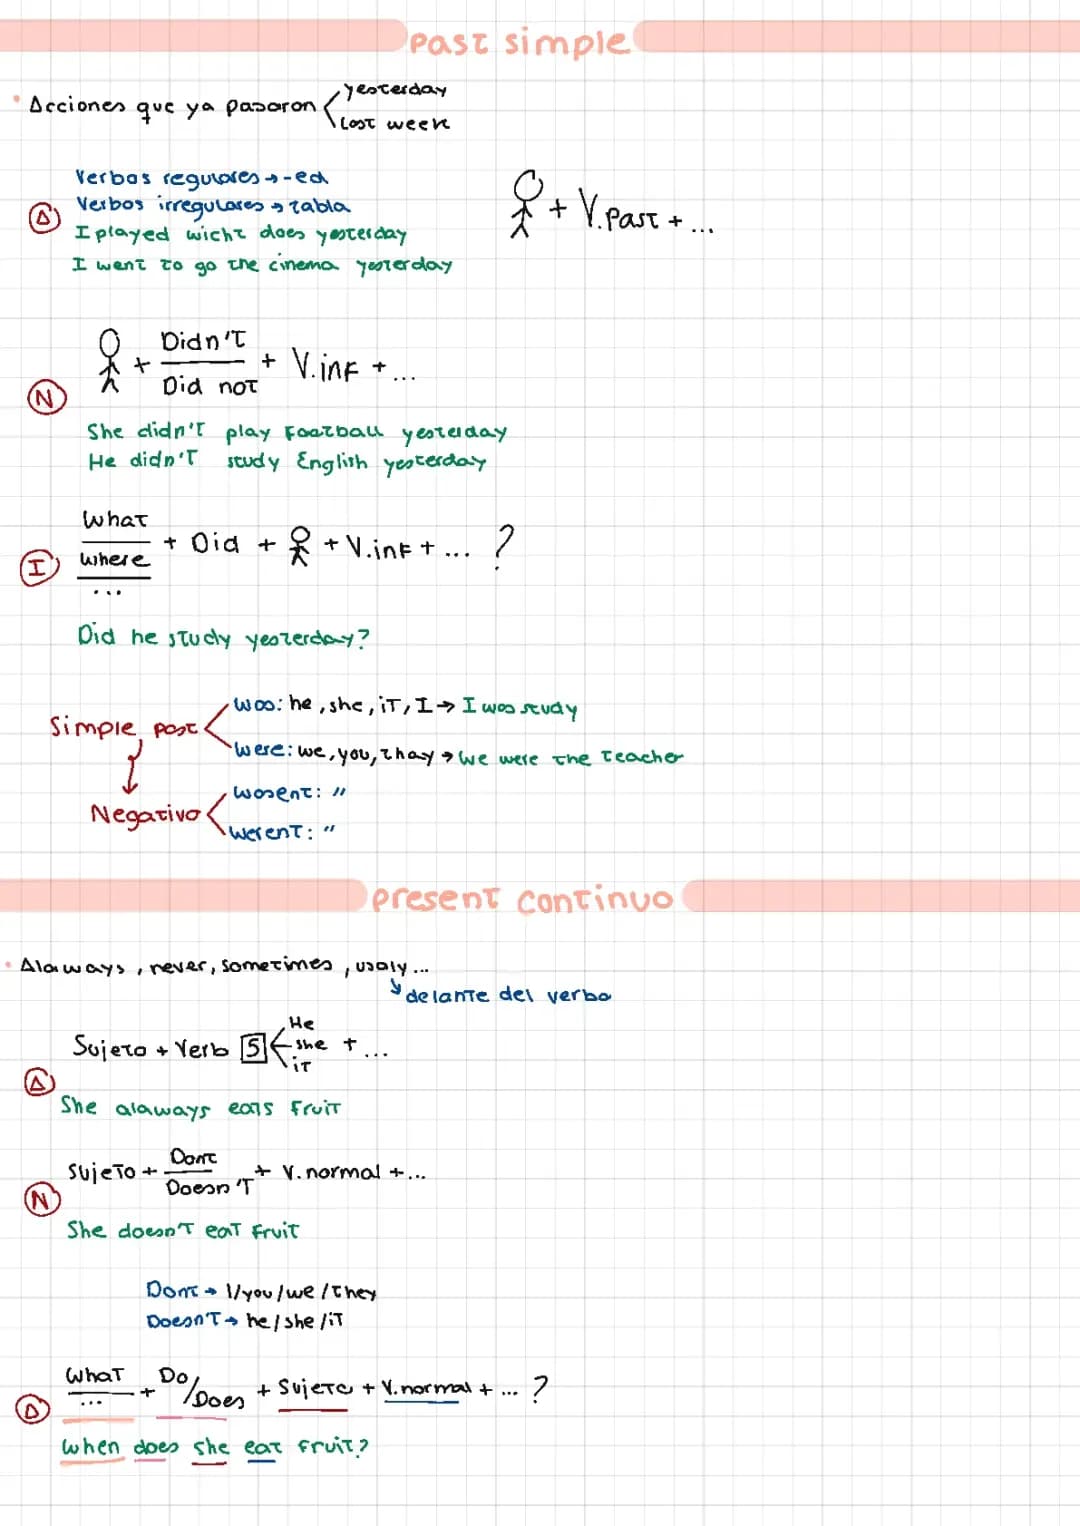 Past simple
• Acciones que ya pasaron yesterday
Last week
Verbos regulares → -ed
Verbos irregulares → tabla
A
I played wicht does yesterday
I went to go the cinema yesterday
+ V.past + ...
Didn't
+ + V.inf + ...
Did not
N
She didn't play Football yesterday
He didn't study English yesterday
What
+ Did + + V.inf + ... ?
where
I
...
Did he study yesterday?
was: he, she, it, I → I was study
Simple past
were: we, you, thay → we were the teacher
wasent: "
Negativo
werent: "
present continuo
• Alaways, never, sometimes, usaly...
delante del verbo
He
Sujeto + Verb S she + ...
it
A
She alaways eats fruit
Dont
Sujeto + + V. normal + ...
Doesn't
N
She doesn't eat fruit
Dont → I/you/we/they
Doesn't → he/she/it
What + Do/Does + Sujeto + V.normal + ... ?
...
A
when does she eat fruit?